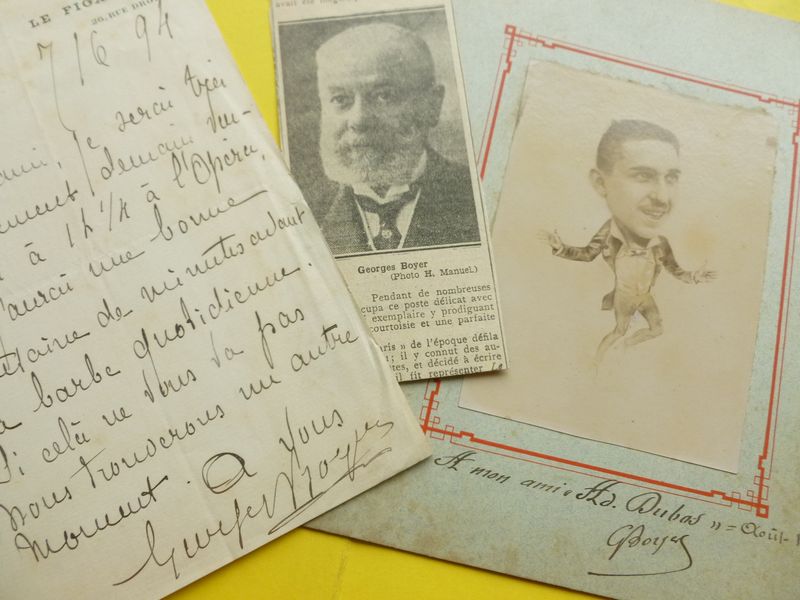 LE FIGA
20, RUE DRO
7/6 94
je serai très
demain
à 1h 1/4 à l'Opéra,
une bonne
taine de minutes avant
barbe quotidienne.
Si celà ne vous va pas
nous trouverons un autre
moment. A vous
Georges Boyer
avait été
Georges Boyer
(Photo H. Manuel.)
Pendant de nombreuses
cupa ce poste délicat avec
exemplaire y prodiguant
courtoisie et une parfaite
aris » de l'époque défila
t ; il y connut des au-
tes, et décidé à écrire
il fit représenter Le
A mon ami « Ad. Dubos » = Août
GBoyer